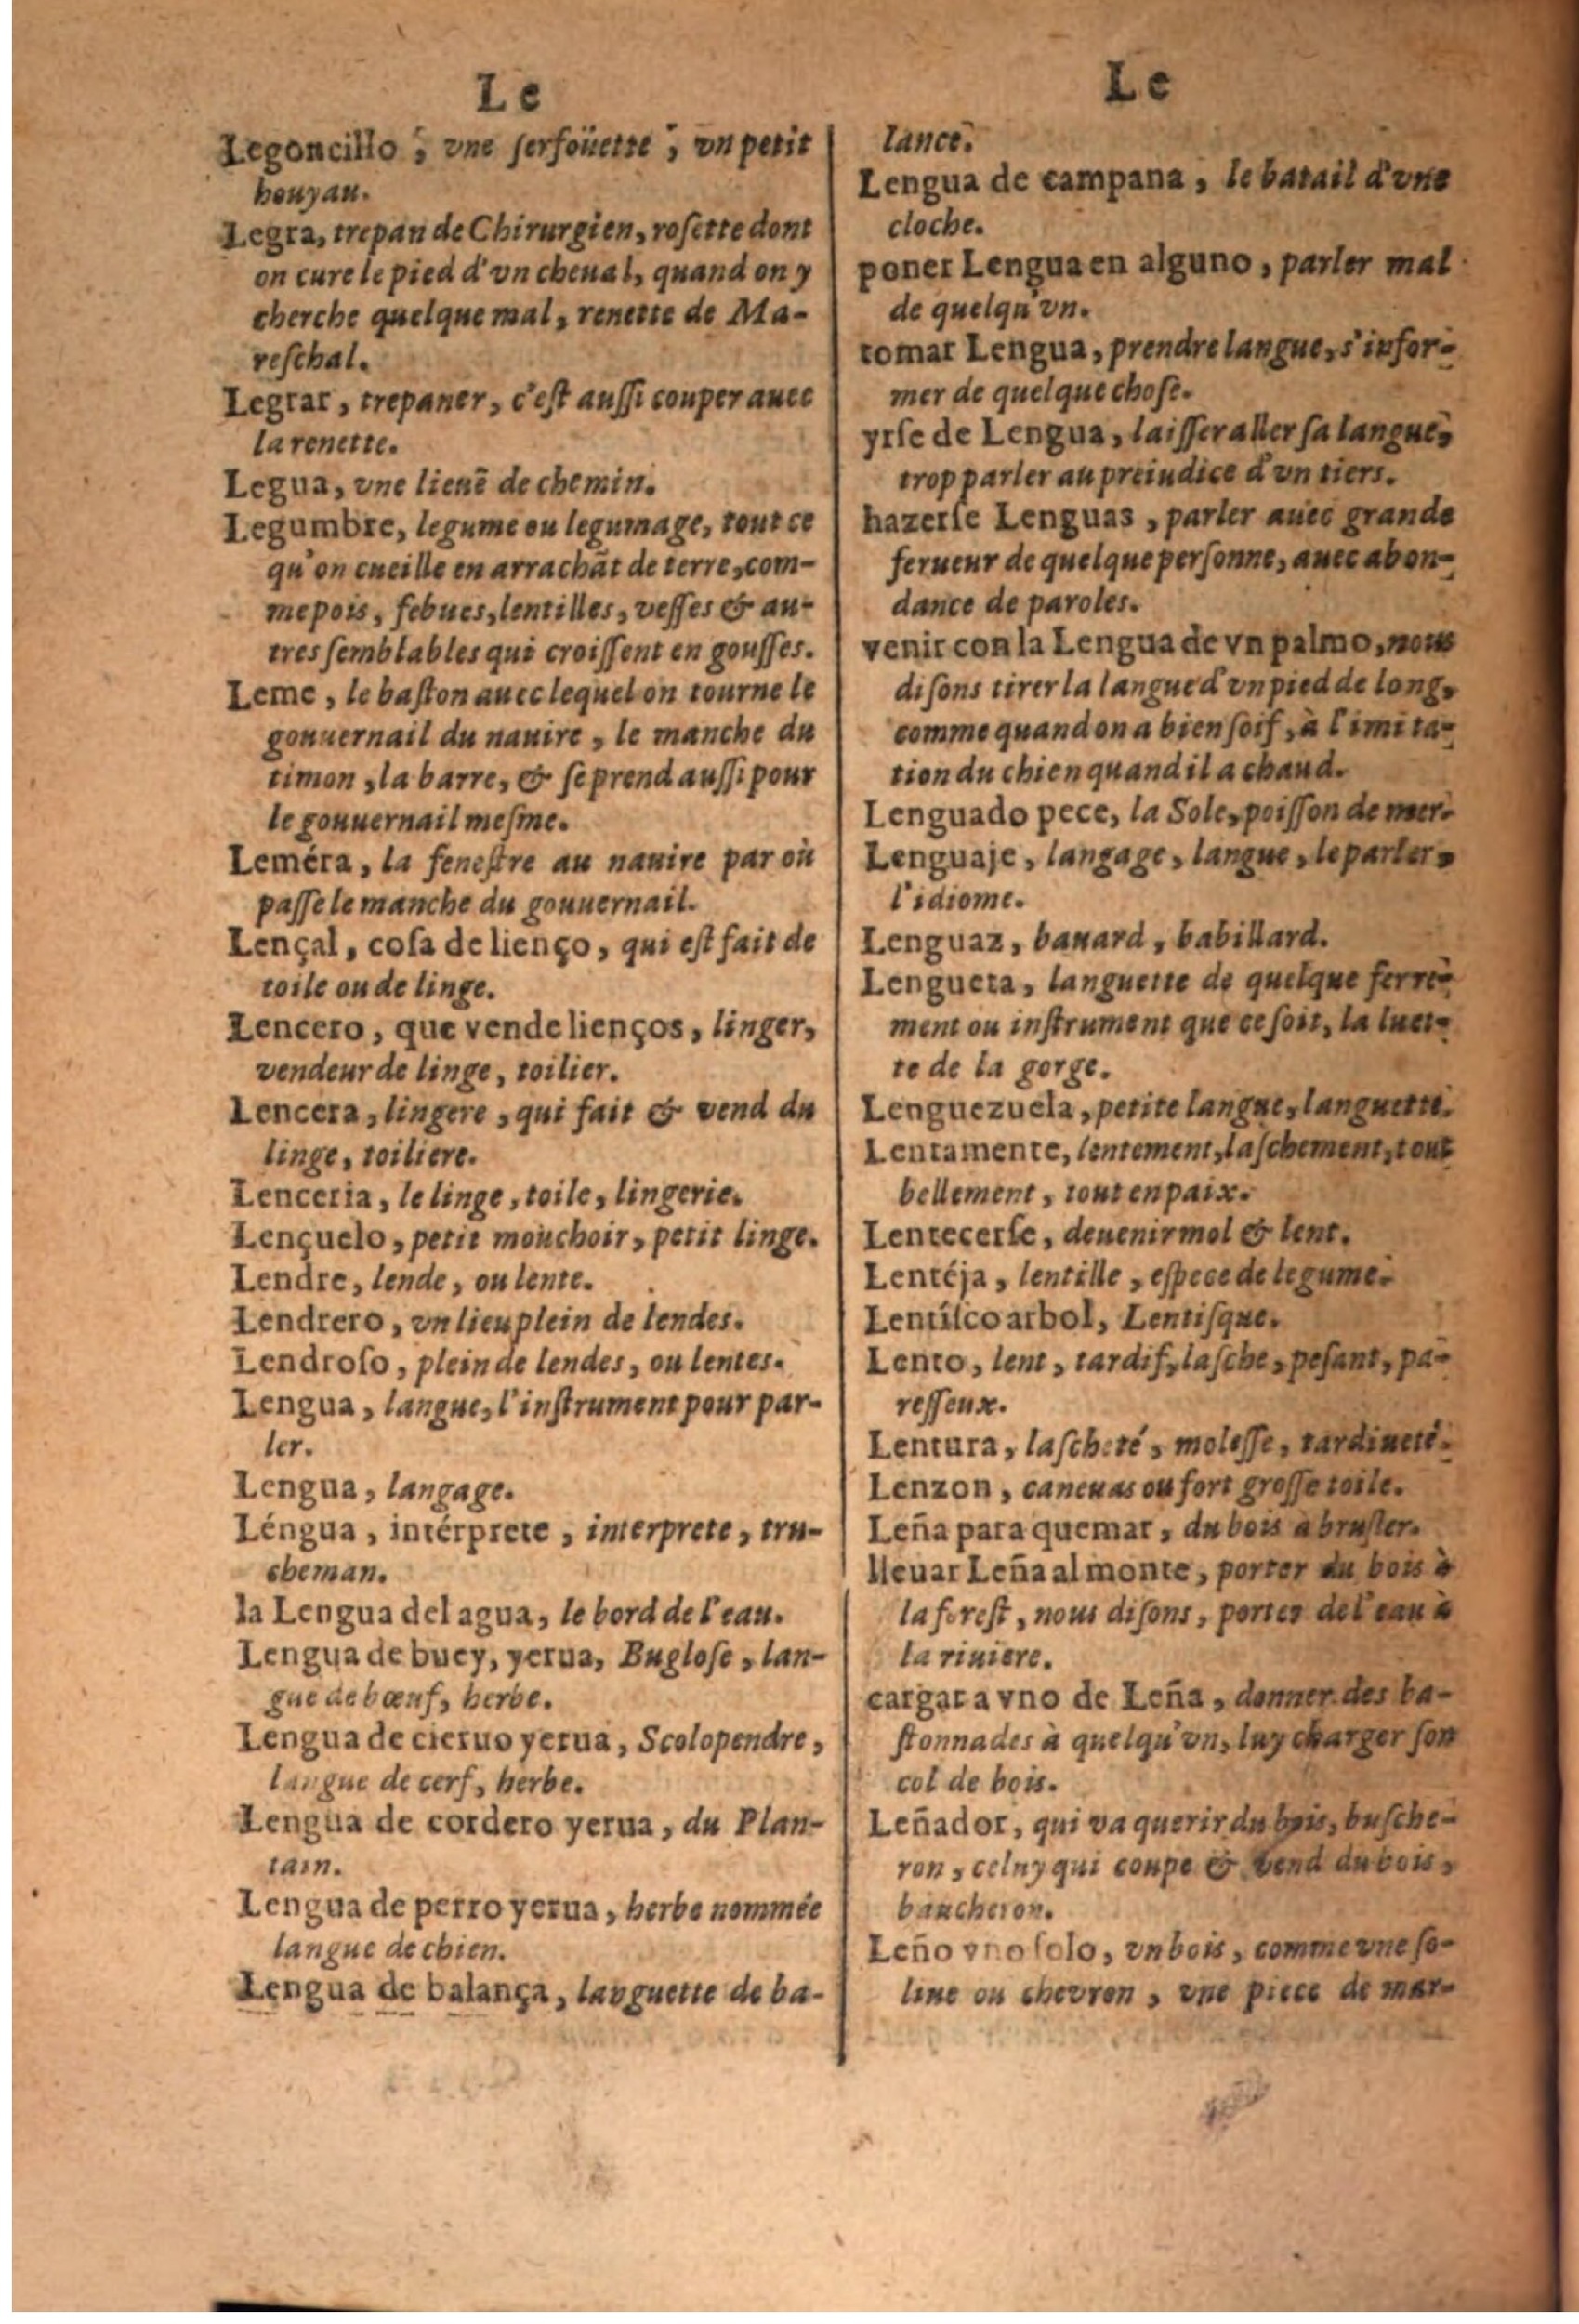 Le
Legoncillo, vne ſerfoüette, vn petit
houyau.
Legra, trepan de Chirurgien, roſette dont
on cure le pied d'vn cheual, quand on y
cherche quelque mal, renette de Ma-
reſchal.
Legrar, trepaner, c'eſt auſſi couper auec
la renette.
Legua, vne lieuë de chemin.
Legumbre, legume ou legumage, tout ce
qu'on cueille en arrachãt de terre, com-
me pois, febues, lentilles, veſſes & au-
tres ſemblables qui croiſſent en gouſſes.
Leme, le baſton auec lequel on tourne le
gouuernail du nauire, le manche du
timon, la barre, & ſe prend auſſi pour
le gouuernail meſme.
Leméra, la feneſtre au nauire par où
paſſe le manche du gouuernail.
Lençal, coſa de lienço, qui eſt fait de
toile ou de linge.
Lencero, que vende lienços, linger,
vendeur de linge, toilier.
Lencera, lingere, qui fait & vend du
linge, toiliere.
Lenceria, le linge, toile, lingerie.
Lençuelo, petit mouchoir, petit linge.
Lendre, lende, ou lente.
Lendrero, vn lieu plein de lendes.
Lendroſo, plein de lendes, ou lentes.
Lengua, langue, l'inſtrument pour par-
ler.
Lengua, langage.
Léngua, intérprete, interprete, tru-
cheman.
la Lengua del agua, le bord de l'eau.
Lengua de buey, yerua, Bugloſe, lan-
gue de bœuf, herbe.
Lengua de cieruo yerua, Scolopendre,
langue de cerf, herbe.
Lengua de cordero yerua, du Plan-
tain.
Lengua de perro yerua, herbe nommée
langue de chien.
Lengua de balança, languette de ba-
Le
lance.
Lengua de campana, le batail d'vne
cloche.
poner Lengua en alguno, parler mal
de quelqu'vn.
tomar Lengua, prendre langue, s'infor-
mer de quelque choſe.
yrſe de Lengua, laiſſer aller ſa langue,
trop parler au preiudice d'vn tiers.
hazerſe Lenguas, parler auec grande
ferueur de quelque perſonne, auec abon-
dance de paroles.
venir con la Lengua de vn palmo, nous
diſons tirer la langue d'vn pied de long,
comme quand on a bien ſoif, à l'imita-
tion du chien quand il a chaud.
Lenguado pece, la Sole, poiſſon de mer.
Lenguaje, langage, langue, le parler,
l'idiome.
Lenguaz, bauard, babillard.
Lengueta, languette de quelque ferre-
ment ou inſtrument que ce ſoit, la luet-
te de la gorge.
Lenguezuela, petite langue, languette.
Lentamente, lentement, laſchement, tout
bellement, tout en paix.
Lentecerſe, deuenir mol & lent.
Lentéja, lentille, eſpece de legume.
Lentíſco arbol, Lentiſque.
Lento, lent, tardif, laſche, peſant, pa-
reſſeux.
Lentura, laſcheté, moleſſe, tardiueté.
Lenzon, caneuas ou fort groſſe toile.
Leña para quemar, du bois à bruſler.
lleuar Leña al monte, porter du bois à
la foreſt, nous diſons, porter de l'eau à
la riuiere.
cargar a vno de Leña, donner des ba-
ſtonnades à quelqu'vn, luy charger ſon
col de bois.
Leñador, qui va querir du bois, buſche-
ron, celuy qui coupe & vend du bois,
baucheron.
Leño vno ſolo, vn bois, comme vne ſo-
liue ou chevron, vne piece de mar-